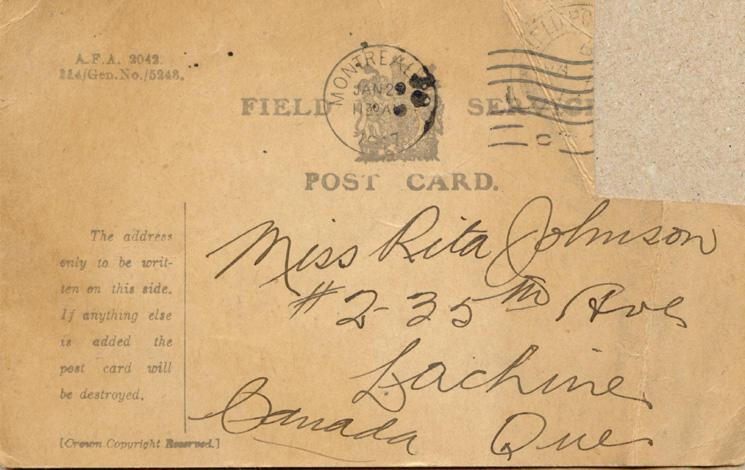 A.F.A. 2042.
114/Gen.No./5248.
MONTREAL
JAN 29
11 30 AM
FIELD SERVICE
POST CARD.
The address
only to be writ-
ten on this side.
If anything else
is added the
post card will
be destroyed.
[Crown Copyright Reserved.]
Miss Rita Johnson
#2-35th Ave
Lachine
Canada Que